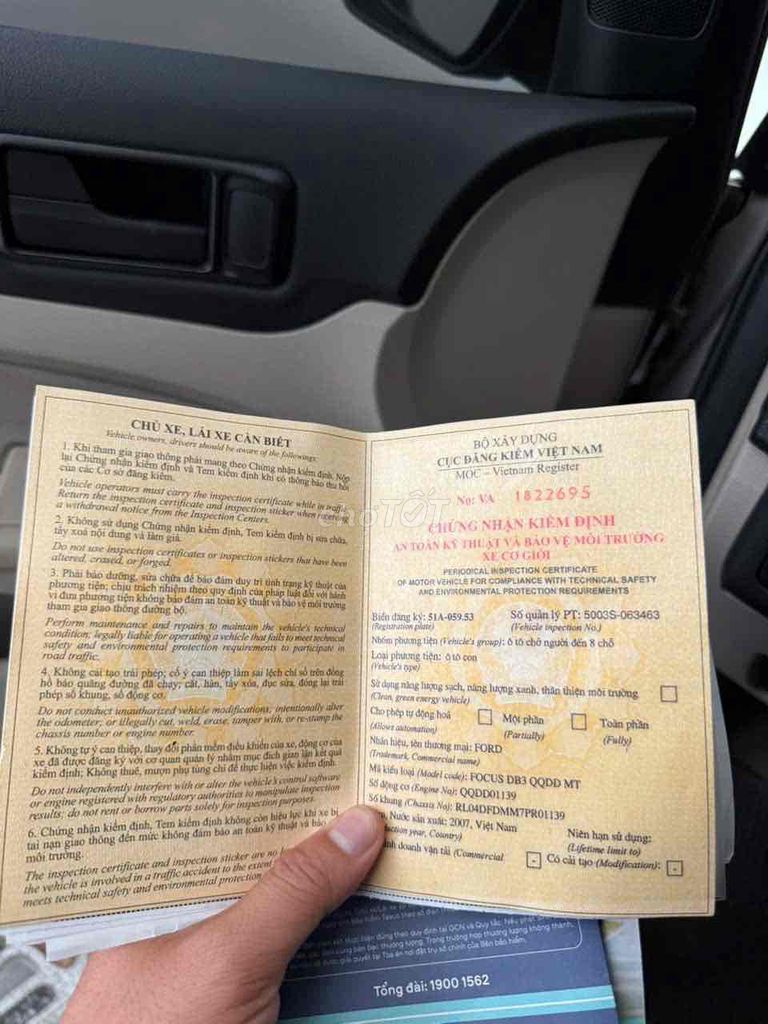 CHỦ XE, LÁI XE CẦN BIẾT
Vehicle owners, drivers should be aware of the followings:
1. Khi tham gia giao thông phải mang theo Chứng nhận kiểm định. Nộp
lại Chứng nhận kiểm định và Tem kiểm định khi có thông báo thu hồi
của các Cơ sở đăng kiểm.
Vehicle operators must carry the inspection certificate while in traffic.
Return the inspection certificate and inspection sticker when receiving
a withdrawal notice from the Inspection Centers.
2. Không sử dụng Chứng nhận kiểm định, Tem kiểm định bị sửa chữa,
tẩy xoá nội dung và làm giả.
Do not use inspection certificates or inspection stickers that have been
altered, erased, or forged.
3. Phải bảo dưỡng, sửa chữa để bảo đảm duy trì tình trạng kỹ thuật của
phương tiện; chịu trách nhiệm theo quy định của pháp luật đối với hành
vi đưa phương tiện không bảo đảm an toàn kỹ thuật và bảo vệ môi trường
tham gia giao thông đường bộ.
Perform maintenance and repairs to maintain the vehicle's technical
condition; legally liable for operating a vehicle that fails to meet technical
safety and environmental protection requirements to participate in
road traffic.
4. Không cải tạo trái phép; cố ý can thiệp làm sai lệch chỉ số trên đồng
hồ báo quãng đường đã chạy; cắt, hàn, tẩy xóa, đục sửa, đóng lại trái
phép số khung, số động cơ.
Do not conduct unauthorized vehicle modifications; intentionally alter
the odometer; or illegally cut, weld, erase, tamper with, or re-stamp the
chassis number or engine number.
5. Không tự ý can thiệp, thay đổi phần mềm điều khiển của xe, động cơ của
xe đã được đăng ký với cơ quan quản lý nhằm mục đích gian lận kết quả
kiểm định; Không thuê, mượn phụ tùng chỉ để thực hiện việc kiểm định.
Do not independently interfere with or alter the vehicle's control software
or engine registered with regulatory authorities to manipulate inspection
results; do not rent or borrow parts solely for inspection purposes.
6. Chứng nhận kiểm định, Tem kiểm định không còn hiệu lực khi xe bị
tai nạn giao thông đến mức không đảm bảo an toàn kỹ thuật và bảo
môi trường.
The inspection certificate and inspection sticker are no
the vehicle is involved in a traffic accident to the extent
meets technical safety and environmental protection
BỘ XÂY DỰNG
CỤC ĐĂNG KIỂM VIỆT NAM
MOC – Vietnam Register
No: VA 1822695
CHỨNG NHẬN KIỂM ĐỊNH
AN TOÀN KỸ THUẬT VÀ BẢO VỆ MÔI TRƯỜNG
XE CƠ GIỚI
PERIODICAL INSPECTION CERTIFICATE
OF MOTOR VEHICLE FOR COMPLIANCE WITH TECHNICAL SAFETY
AND ENVIRONMENTAL PROTECTION REQUIREMENTS
Biển đăng ký: 51A-059.53 Số quản lý PT: 5003S-063463
(Registration plate) (Vehicle inpection No.)
Nhóm phương tiện (Vehicle's group): ô tô chở người đến 8 chỗ
Loại phương tiện: ô tô con
(Vehicle's type)
Sử dụng năng lượng sạch, năng lượng xanh, thân thiện môi trường
(Clean, green energy vehicle)
Cho phép tự động hoá Một phần Toàn phần
(Allows automation) (Partially) (Fully)
Nhãn hiệu, tên thương mại: FORD
(Trademark, Commercial name)
Mã kiểu loại (Model code): FOCUS DB3 QQDD MT
Số động cơ (Engine No): QQDD01139
Số khung (Chassis No): RL04DFDMM7PR01139
Nước sản xuất: 2007, Việt Nam Niên hạn sử dụng:
year, Country) (Lifetime limit to)
doanh vận tải (Commercial Có cải tạo (Modification):
Tổng đài: 1900 1562
Chợ TỐT